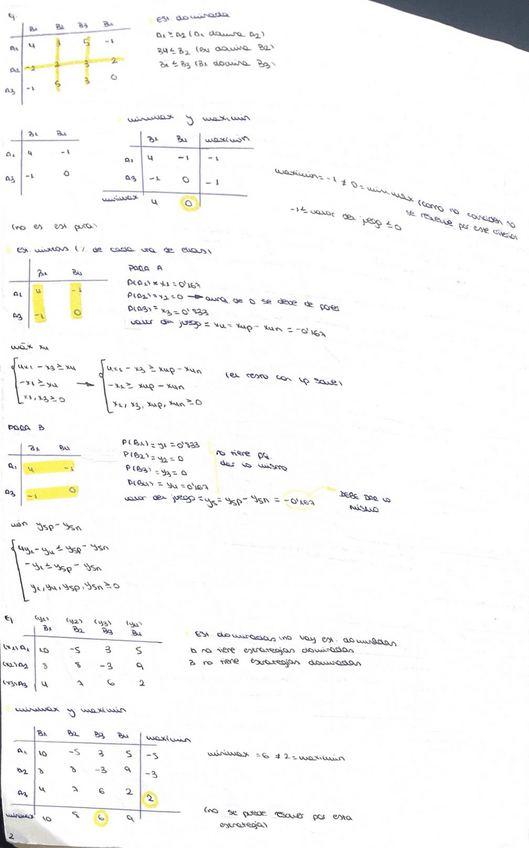 Ej.
B1 B2 B3 B4
A1 4 5 -1
A2 -2 3 2
A3 -1 5 3 0
Est. dominada
A1 ≥ A2 (A1 domina A2)
B4 ≤ B2 (B4 domina B2)
B1 ≤ B3 (B1 domina B3)
minimax y maximin
B1 B4
A1 4 -1
A3 -1 0
B1 B4 maximin
A1 4 -1 -1
A3 -1 0 -1
minimax 4 0
maximin = -1 ≠ 0 = minimax (como no coinciden no se resuelve por este criterio)
-1 ≤ valor del juego ≤ 0
(no es est pura)
Est. mixtas (1 de cada una de ellas)
B1 B4
A1 4 -1
A3 -1 0
PARA A
P(A1) = x1 = 0'167
P(A2) = x2 = 0
P(A3) = x3 = 0'833
valor del juego = xu = xup - xun = -0'167
máx xu
4x1 - x3 ≥ xu
-x1 ≥ xu
x1, x3 ≥ 0
4x1 - x3 ≥ xup - xun
-x1 ≥ xup - xun
x1, x3, xup, xun ≥ 0
(el resto con lp solve)
PARA B
B1 B4
A1 4 -1
A3 -1 0
P(B1) = y1 =
P(B2) = y2 = 0
P(B3) = y3 = 0
P(B4) = y4 =
no tiene pq dar lo mismo
valor del juego = y5 = y5p - y5n = -0'167
DEBE DAR LO MISMO
min y5p - y5n
4y1 - y4 ≤ y5p - y5n
-y1 ≤ y5p - y5n
y1, y4, y5p, y5n ≥ 0
Ej. (y1) (y2) (y3) (y4)
B1 B2 B3 B4
(x1) A1 10 -5 3 5
(x2) A2 3 8 -3 9
(x3) A3 4 7 6 2
Est. dominadas (no hay est. dominadas)
A no tiene estrategias dominadas
B no tiene estrategias dominadas
minimax y maximin
B1 B2 B3 B4 maximin
A1 10 -5 3 5 -5
3 8 -3 9 -3
A3 4 7 6 2 2
minimax 10 8 6 9
minimax = 6 ≠ 2 = maximin
(no se puede resolver por esta estrategia)
2